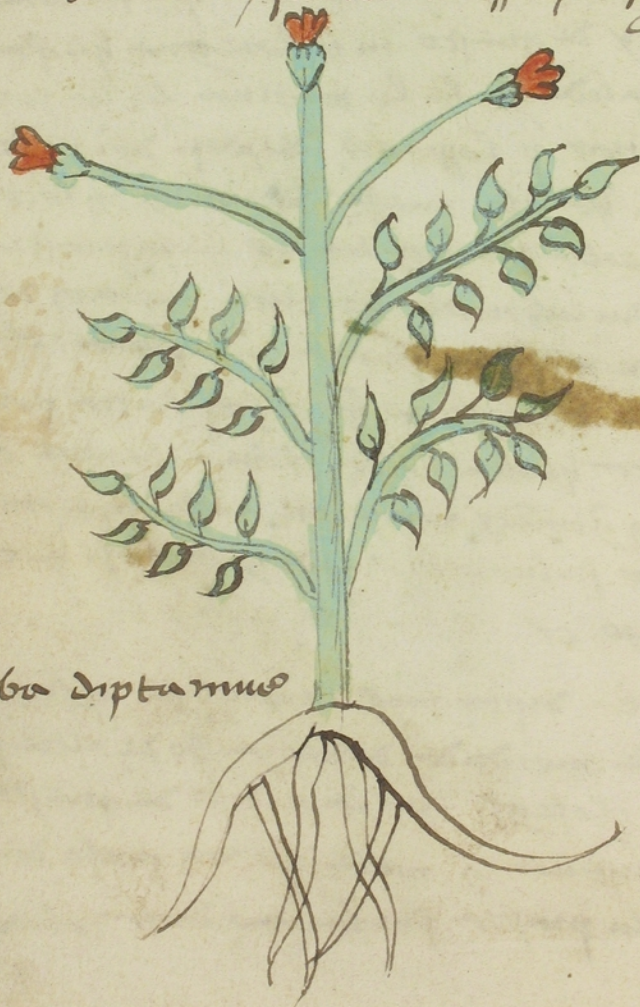 ba diptamus